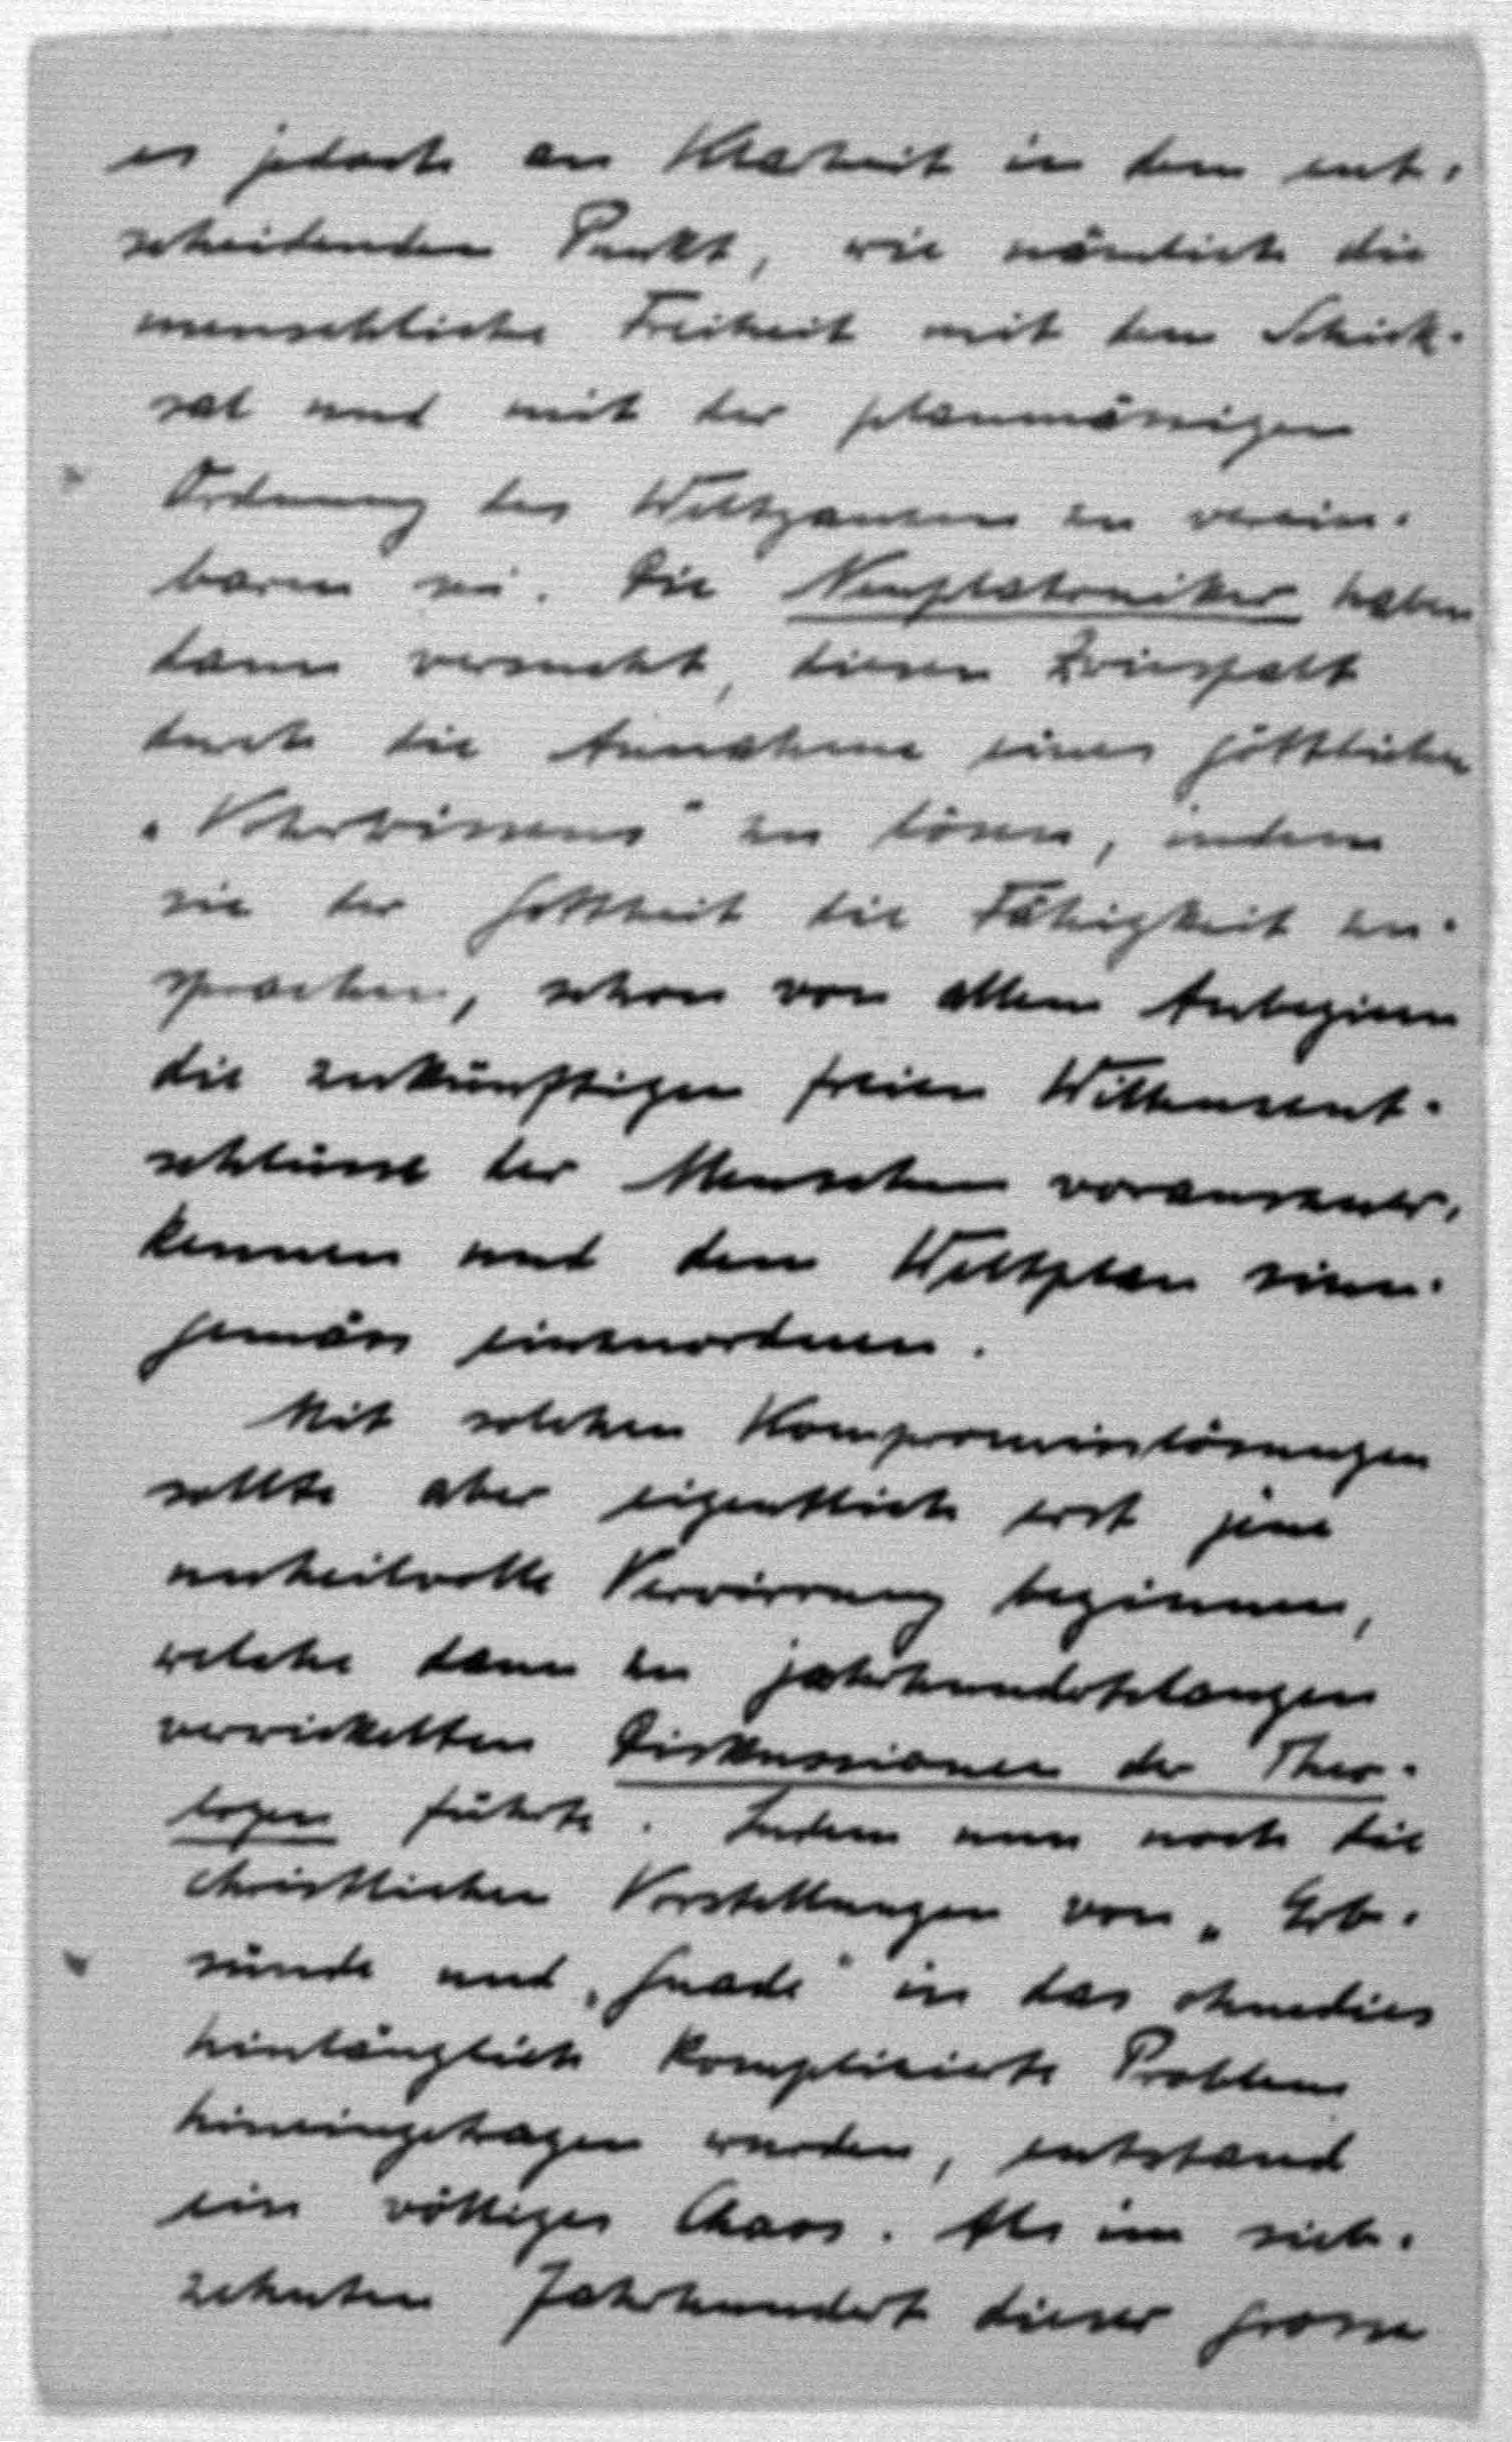 es jedoch an Klarheit in dem ent-
scheidenden Punkt, wie nämlich die
menschliche Freiheit mit dem Schick-
sal und mit der planmässigen
Ordnung des Weltganzen zu verein-
baren sei. Die Neuplatoniker haben
dann versucht, diesen Zwiespalt
durch die Annahme eines göttlichen
„Vorherwissens" zu lösen, indem
sie der Gottheit die Fähigkeit zu-
sprachen, schon von allem Anbeginn
die zukünftigen freien Willensent-
schlüsse der Menschen vorauszuer-
kennen und dem Weltplan sinn-
gemäss einzuordnen.
Mit solchen Kompromisslösungen
sollte aber eigentlich erst jene
unheilvolle Verwirrung beginnen,
welche dann zu jahrhundertelangen
verwickelten Diskussionen der Theo-
logen führte. Indem nun noch die
christlichen Vorstellungen von „Erb-
sünde und „Gnade" in das ohnedies
hinlänglich komplizierte Problem
hineingetragen wurden, entstand
ein völliges Chaos. Als im sieb-
zehnten Jahrhundert dieser grosse